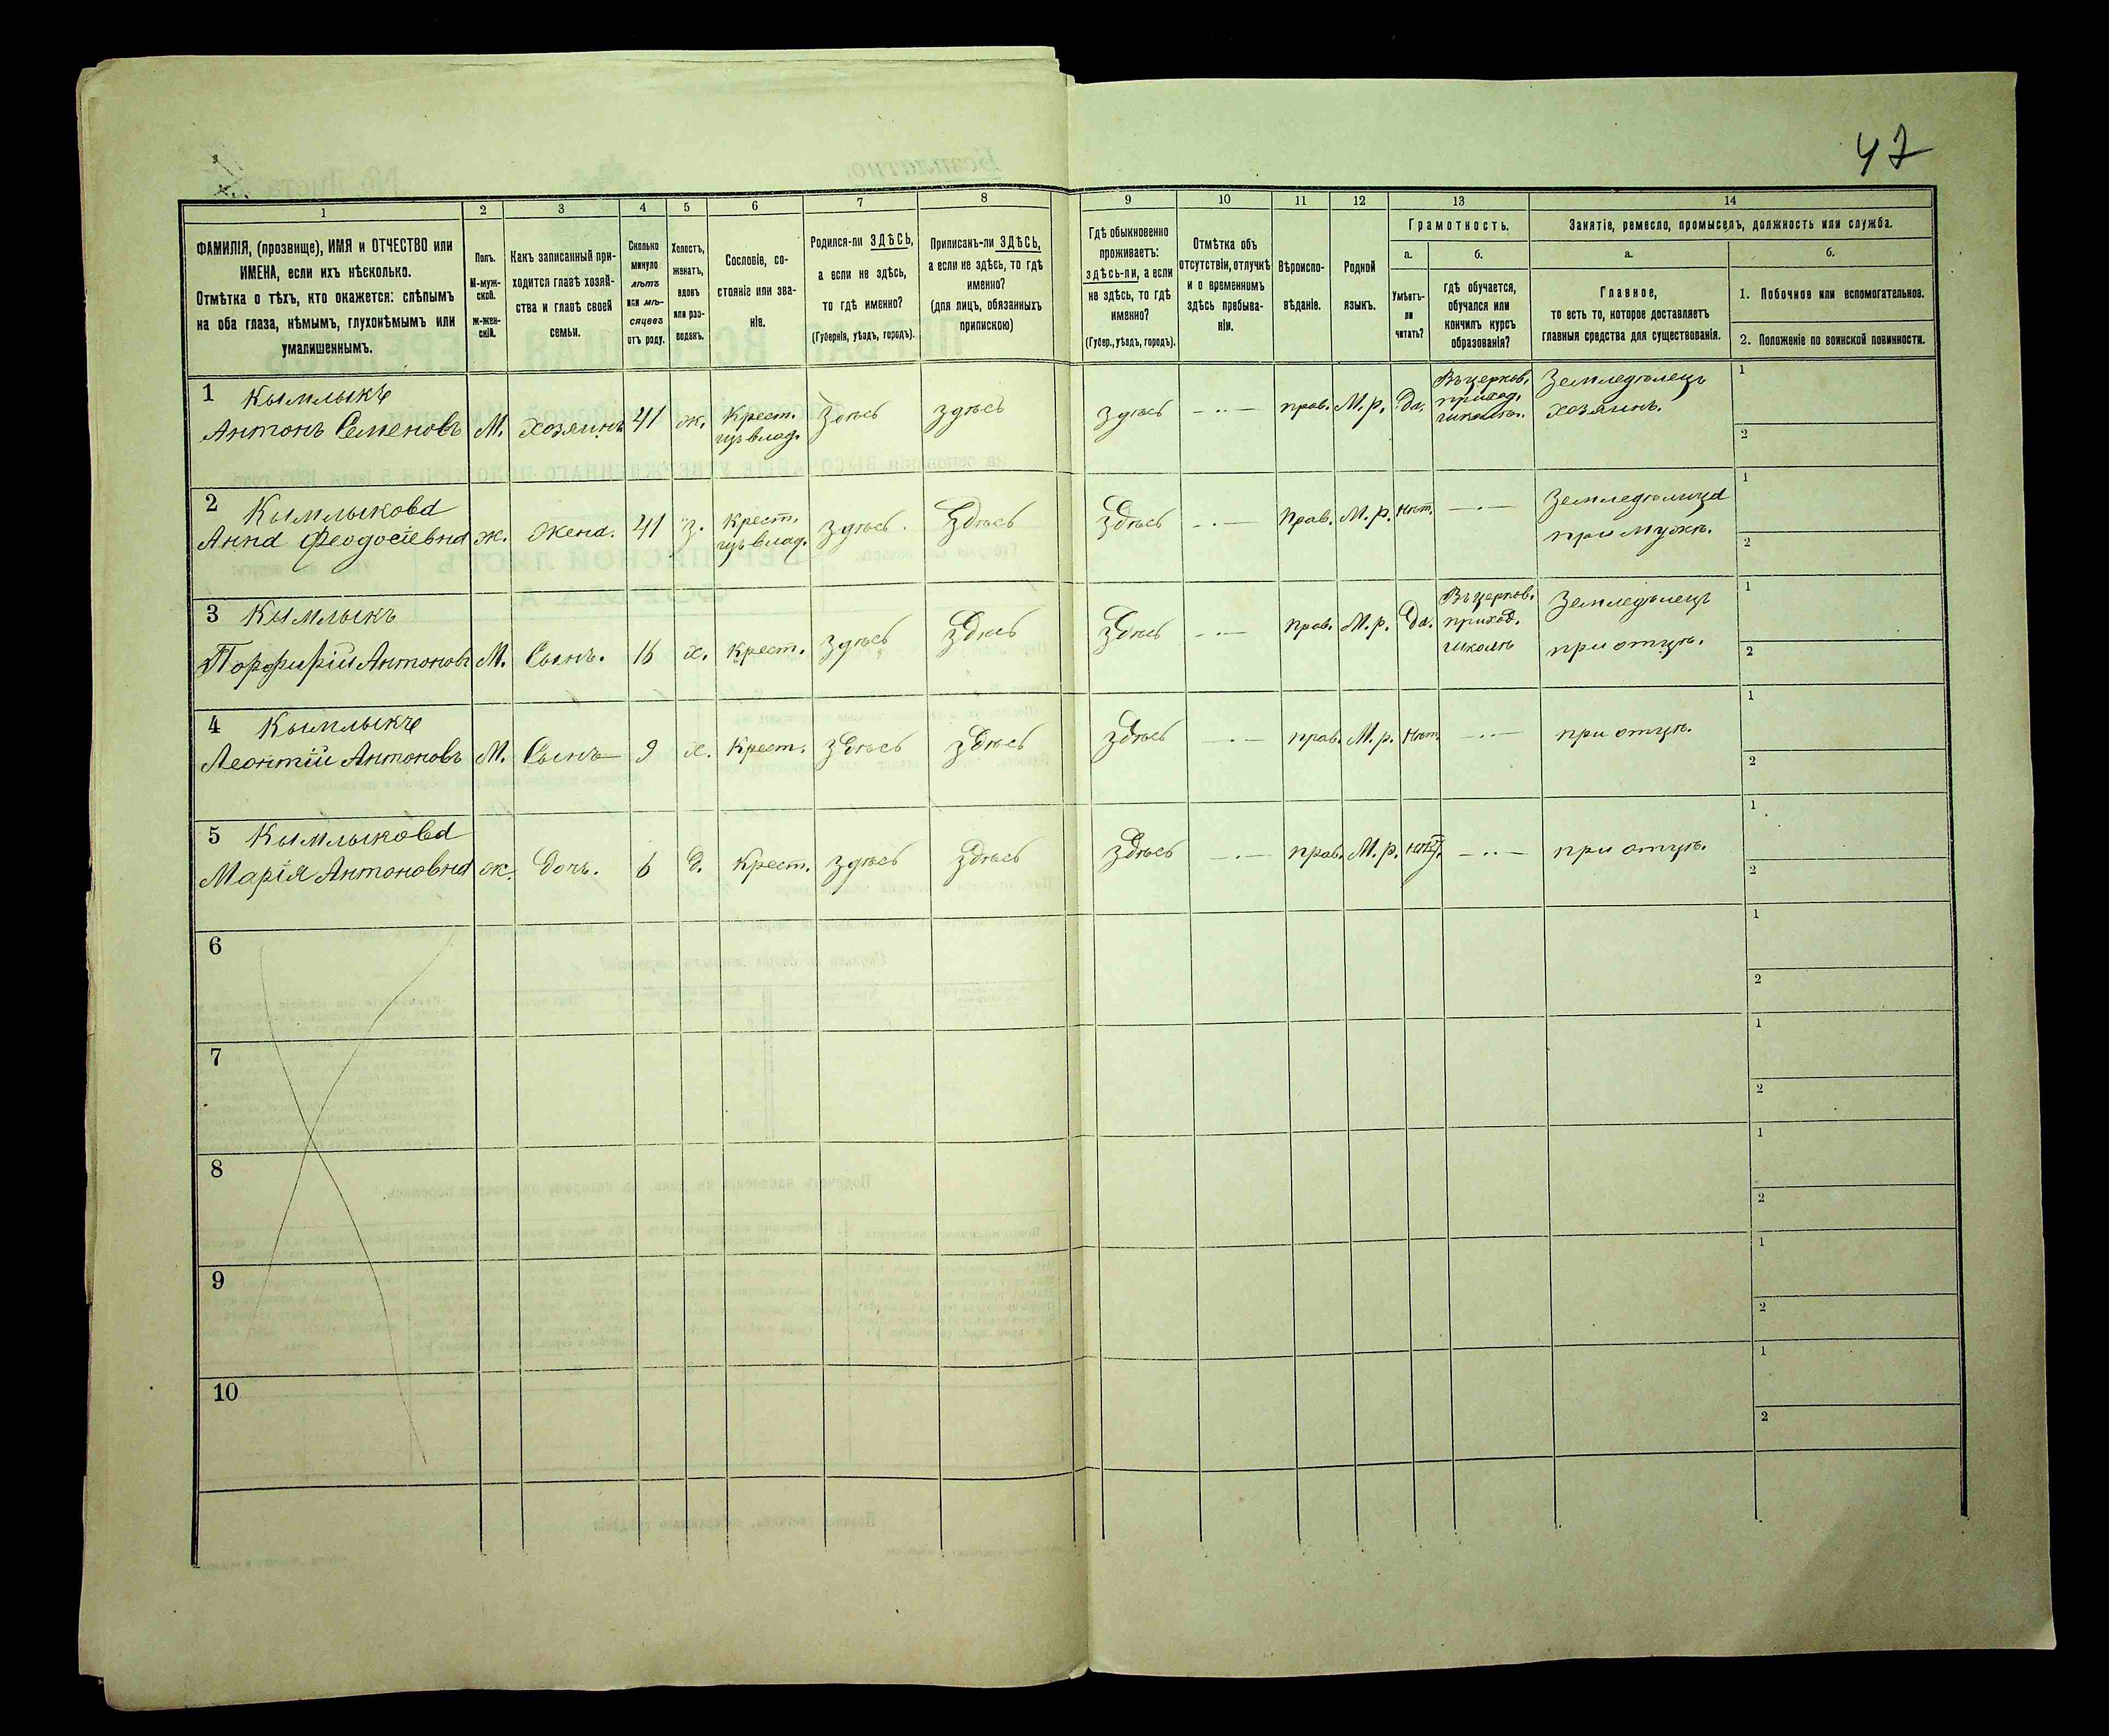 47
1 2 3 4 5 6 7 8 9 10 11 12 13 14
ФАМИЛІЯ, (прозвище), ИМЯ и ОТЧЕСТВО или
ИМЕНА, если ихъ нѣсколько.
Отмѣтка о тѣхъ, кто окажется: слѣпымъ
на оба глаза, нѣмымъ, глухонѣмымъ или
умалишеннымъ.
Полъ.
М-муж-
ской.
ж-жен-
скій.
Какъ записанный при-
ходится главѣ хозяй-
ства и главѣ своей
семьи.
Сколько
минуло
лѣтъ
или мѣ-
сяцевъ
отъ роду.
Холостъ,
женатъ,
вдовъ
или раз-
веденъ.
Сословіе, со-
стояніе или зва-
ніе.
Родился-ли ЗДѢСЬ,
а если не здѣсь,
то гдѣ именно?
(Губернія, уѣздъ, городъ).
Приписанъ-ли ЗДѢСЬ,
а если не здѣсь, то гдѣ
именно?
(для лицъ, обязанныхъ
припискою)
Гдѣ обыкновенно
проживаетъ:
здѣсь-ли, а если
не здѣсь, то гдѣ
именно?
(Губер., уѣздъ, городъ).
Отмѣтка объ
отсутствіи, отлучкѣ
и о временномъ
здѣсь пребыва-
ніи.
Вѣроиспо-
вѣданіе.
Родной
языкъ.
Грамотность.
а.
Умѣетъ-
ли
читать?
б.
гдѣ обучается,
обучался или
кончилъ курсъ
образованія?
Занятіе, ремесло, промыселъ, должность или служба.
а.
Главное,
то есть то, которое доставляетъ
главныя средства для существованія.
б.
1. Побочное или вспомогательное.
2. Положеніе по воинской повинности.
1 Кымлыкъ
Антонъ Семеновъ М. хозяинъ 41 ж. Крест. здѣсь здѣсь здѣсь прав. М.р. Да. Въ церков. Земледѣлецъ 1
изъ влад. приход. хозяинъ. 2
школѣ.
2 Кымлыкова
Анна Феодосіевна ж. Жена. 41 з. Крест. здѣсь. здѣсь здѣсь Прав. М.р. Нѣт. Земледѣлица 1
изъ влад. при мужѣ. 2
3 Кымлыкъ
Порфирій Антоновъ М. Сынъ. 16 х. Крест. здѣсь здѣсь здѣсь прав. М.р. Да. Въ церков. Земледѣлецъ 1
приход. при отцѣ. 2
школѣ
4 Кымлыкъ
Леонтій Антоновъ М. Сынъ 9 х. Крест. здѣсь здѣсь здѣсь прав. М.р. Нѣт. при отцѣ. 1
2
5 Кымлыкова
Марія Антоновна ж. Дочь. 6 д. Крест. здѣсь здѣсь здѣсь прав. М.р. нѣт. при отцѣ. 1
2
6 1
2
7 1
2
8 1
2
9 1
2
10 1
2